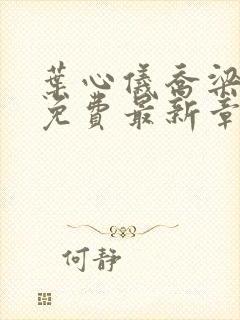 葉心儀喬梁
免費最新章
何靜